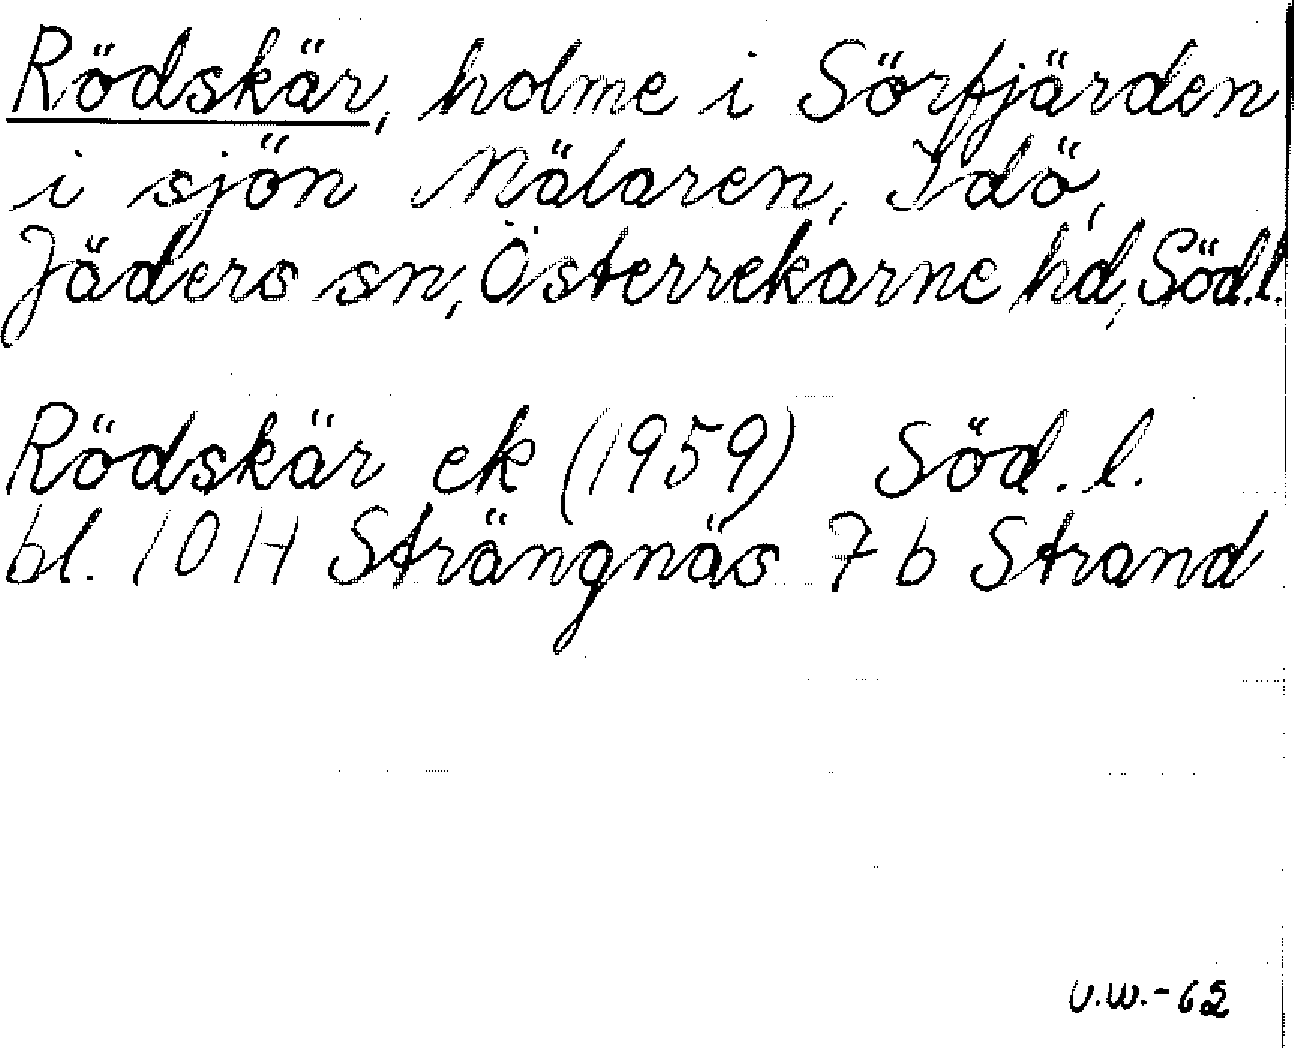 Rödskär, holme i Sörfjärden
i sjön Mälaren, Idö,
Jäders sn, Österrekarne hd, Söd.l.
Rödskär ek (1959) Söd. l.
bl. 10 H Strängnäs 7 b Strand
U.W.-62